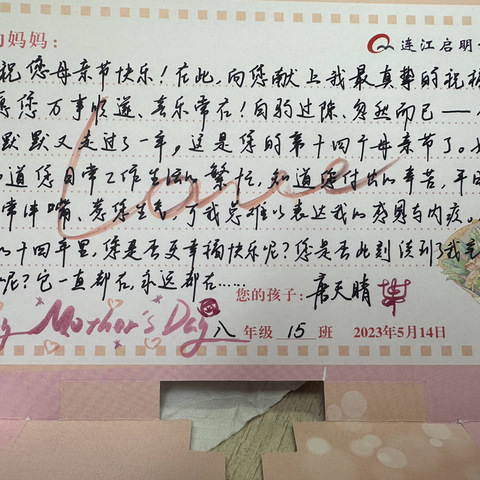 妈妈： 连江启明
祝您母亲节快乐！在此，向您献上我最真挚的祝
愿您万事顺遂、喜乐常在！白驹过隙、忽然而已——
默默又走过了一年，这是您的第十四个母亲节了。
道您日常工作生活的繁忙，知道您付出的辛苦，平
常拌嘴、惹您生气，可我总难以表达我的感恩与内疚。
十四年里，您是否更幸福快乐呢？您是否此刻读到了我
呢？它一直都在，永远都在……
您的孩子：唐天晴
Mother's Day 八年级15班 2023年5月14日
Love